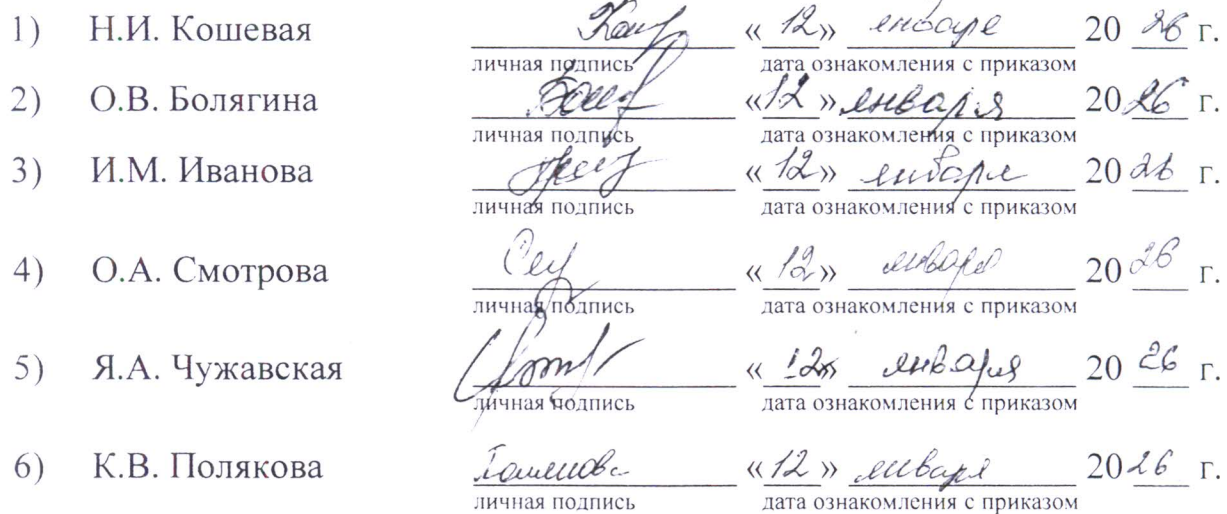 1) Н.И. Кошевая «12» января 2026 г.
личная подпись дата ознакомления с приказом
2) О.В. Болягина «12» января 2026 г.
личная подпись дата ознакомления с приказом
3) И.М. Иванова «12» января 2026 г.
личная подпись дата ознакомления с приказом
4) О.А. Смотрова «12» января 2026 г.
личная подпись дата ознакомления с приказом
5) Я.А. Чужавская «12» января 2026 г.
личная подпись дата ознакомления с приказом
6) К.В. Полякова «12» января 2026 г.
личная подпись дата ознакомления с приказом